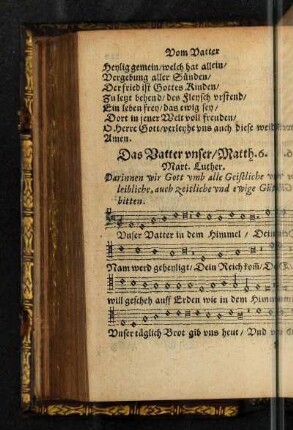 Vom Vatter
Heylig gemein/welch hat allein/
Vergebung aller Sünden/
Der fried ist Gottes Kinden/
Zu letzt behend/des Fleysch vrstend/
Ein leben frey/das ewig sey/
Dort in jener Welt voll freuden/
O Herre Gott/verleyhe vns auch diese
Amen.
Das Vatter vnser/Matth.6.
Mart. Luther.
Darinnen wir Gott vmb alle Geistliche
leibliche, auch zeitliche vnd ewige
bitten.
Vnser Vatter in dem Himmel/
Nam werd geheyligt/Dein Reich kom/
will gescheh auff Erden wie in dem
Vnser täglich Brot gib vns heut/